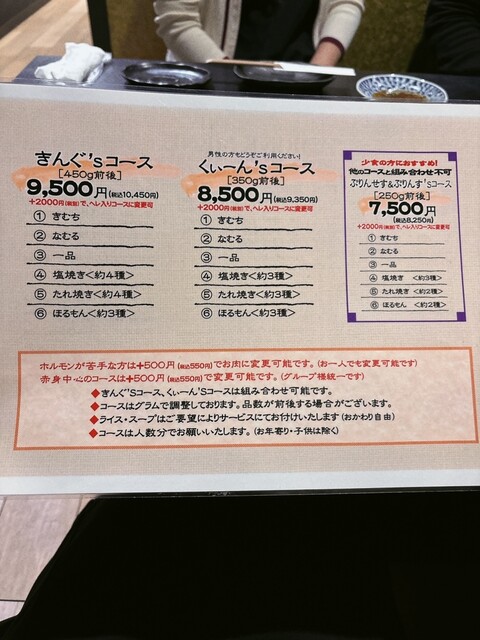 きんぐ'sコース
[450g前後]
9,500円(税込10,450円)
+2000円(税別)で、ヘレ入りコースに変更可
① きむち
② なむる
③ 一品
④ 塩焼き<約4種>
⑤ たれ焼き<約4種>
⑥ ほるもん<約3種>
男性の方もどうぞご利用ください!
くぃーん'sコース
[350g前後]
8,500円(税込9,350円)
+2000円(税別)で、ヘレ入りコースに変更可
① きむち
② なむる
③ 一品
④ 塩焼き<約3種>
⑤ たれ焼き<約3種>
⑥ ほるもん<約3種>
少食の方におすすめ!
他のコースと組み合わせ不可
ぷりんせす&ぷりんす'sコース
[250g前後]
7,500円
(税込8,250円)
+2000円(税別)で、ヘレ入りコースに変更可
① きむち
② なむる
③ 一品
④ 塩焼き <約3種>
⑤ たれ焼き <約2種>
⑥ ほるもん <約2種>
ホルモンが苦手な方は+500円(税込550円)でお肉に変更可能です。(お一人でも変更可能です)
赤身中心のコースは+500円(税込550円)で変更可能です。(グループ様統一です)
◆きんぐ'Sコース、くぃーん'Sコースは組み合わせ可能です。
◆コースはグラムで調整しております。品数が前後する場合がございます。
◆ライス・スープはご要望によりサービスにてお付けいたします(おかわり自由)
◆コースは人数分でお願いいたします。(お年寄り・子供は除く)